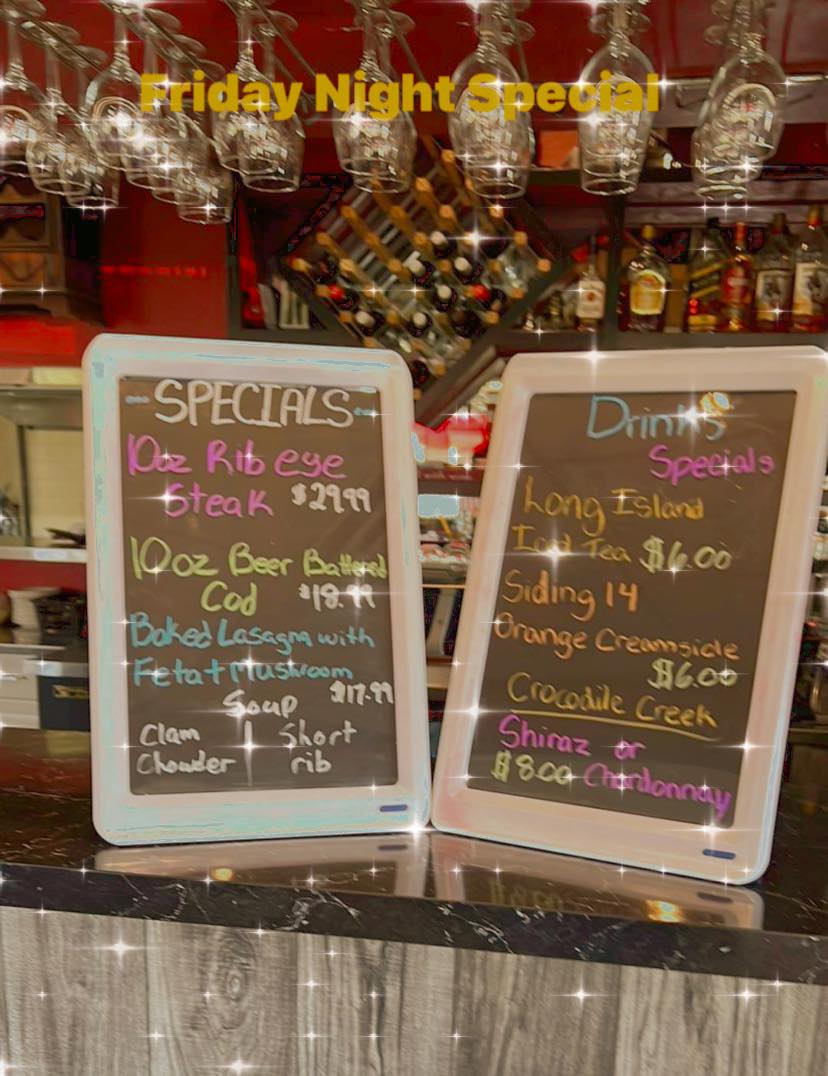 Friday Night Special
SPECIALS
10oz Rib eye
Steak $29.99
10oz Beer Battered
Cod $18.99
Baked Lasagna with
Feta + Mushroom
$17.99
Soup
Clam | Short
Chowder | rib
Drinks
Specials
Long Island
Iced Tea $6.00
Siding 14
Orange Creamside
$6.00
Crocodile Creek
Shiraz or
$8.00 Chardonnay